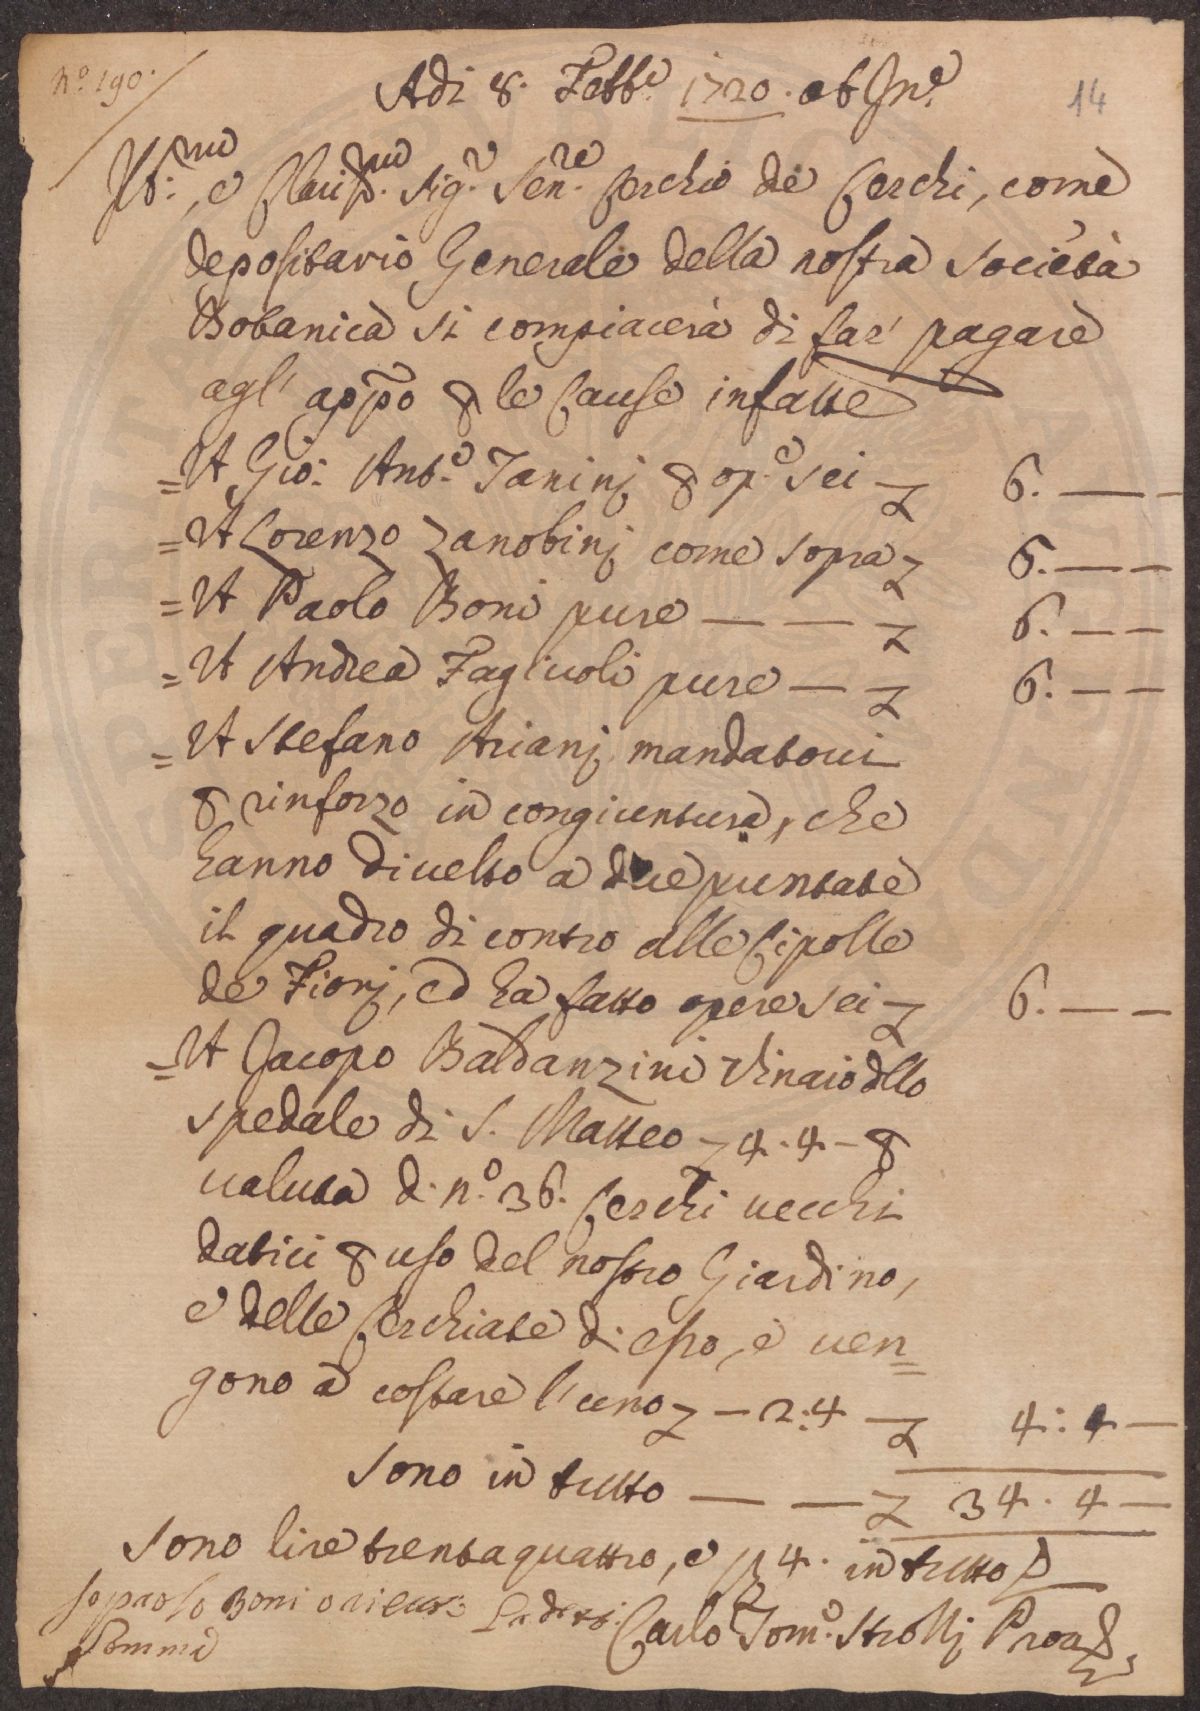 N.o 190.
14
Adi 8. Febb.e 1720. ab In.e
Ill.mo, e Clariss.mo Sig.r Sen.re Cerchio de Cerchi, come
depositario Generale della nostra Società
Botanica si compiacerà di far' pagare
agl' app.o p le Cause infatte
= A Gio: Ant.o Janinj p op.e sei £ 6. — —
= A Lorenzo Zanobinj come sopra £ 6. — —
= A Paolo Boni pure — — £ 6. — —
= A Andrea Fagiuoli pure — £ 6. — —
= A Stefano Arianj mandatoui
p rinforzo in congiuntura, che
hanno diuelto a due puntate
il quadro di contro alle Cipolle
de Fiorj, ed ha fatto opere sei £ 6. — —
= A Jacopo Baldanzini Vinaio dllo
spedale di S. Matteo £ 4. 4 — p
ualuta d. n.o 36. Cerchi uecchi
datici p uso del nostro Giardino,
e delle Cerchiate di esso, e uen=
gono a costare l'uno £ — 2:4 — £ 4: 4 —
Sono in tutto — — £ 34. 4 —
Sono lire trentaquattro, e ß 4. in tutto
Io paolo Boni o riceuto
Somma
Carlo Tom.o Strozzj Proa